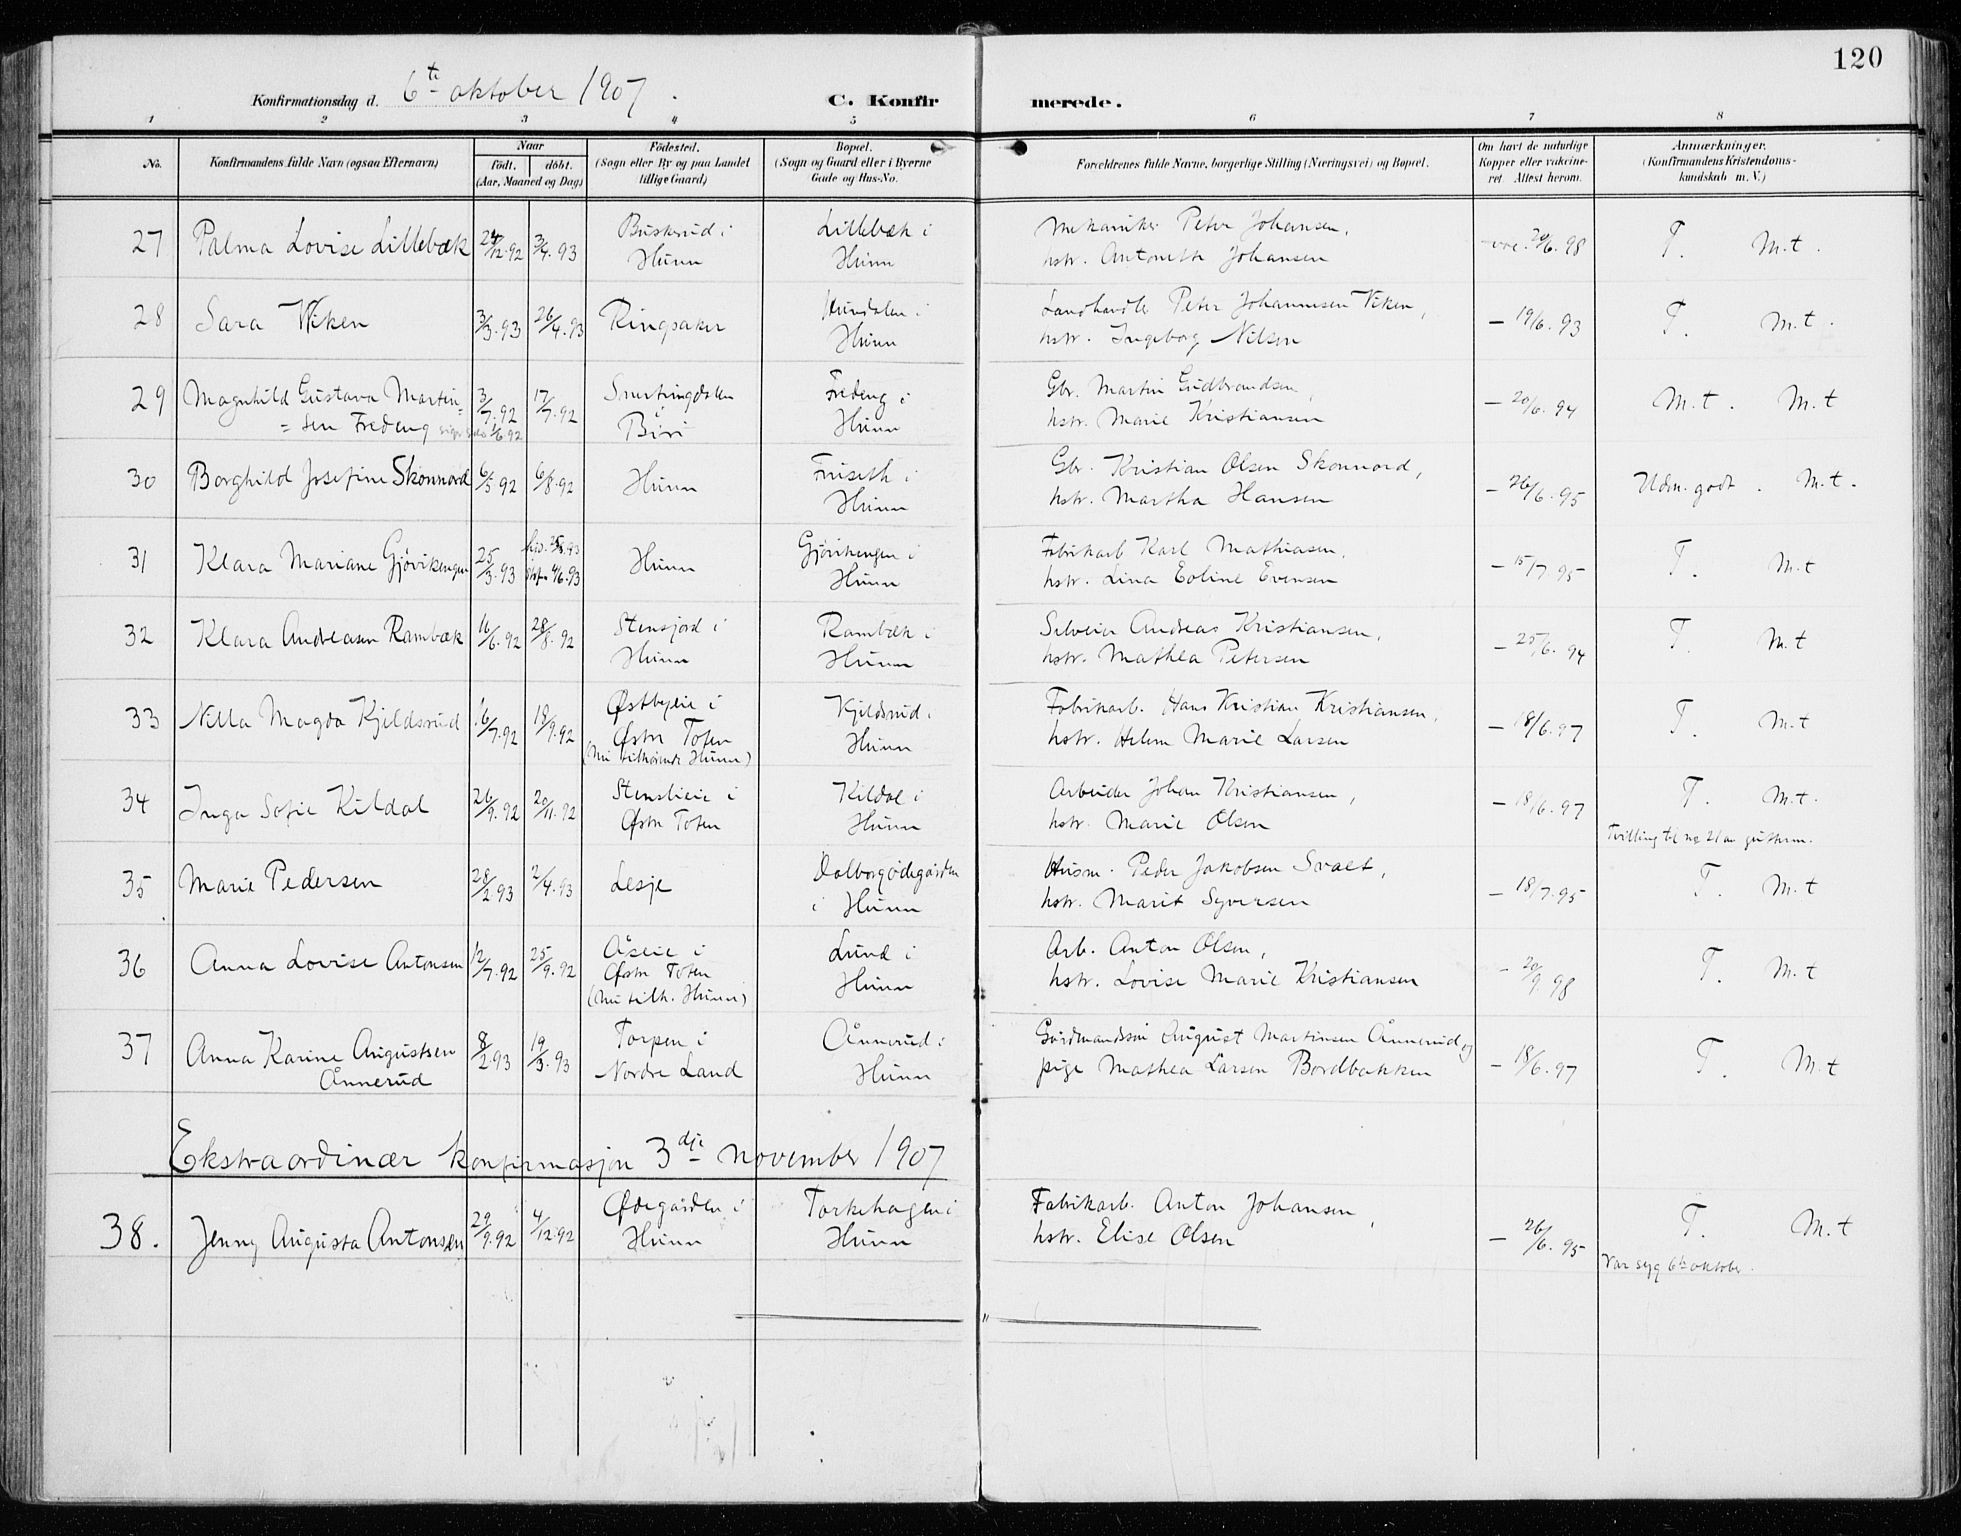 120
Konfirmationsdag d. 6te oktober 1907.
C. Konfirmerede.
1 2 3 4 5 6 7 8
No.
Konfirmandens fulde Navn (ogsaa Efternavn)
Naar
født. døbt.
(Aar, Maaned og Dag)
Fødested.
(Sogn eller By og paa Landet
tillige Gaard)
Bopæl.
(Sogn og Gaard eller i Byerne
Gade og Hus-No.
Forældrenes fulde Navne, borgerlige Stilling (Næringsvei) og Bopæl.
Om havt de naturlige
Kopper eller vakcine-
ret. Attest herom.
Anmærkninger.
(Konfirmandens Kristendoms-
kundskab m. V.)
27 Palma Lovise Lillebæk 24/12.92 3/4.93 Buskerud i Hunn Lillebæk i Hunn
Mekaniker Peter Johansen,
hstr. Antonette Johansen
20/6.98 T. M.t.
28 Sara Viken 3/3.93 26/4.93 Ringsaker Hundalen i Hunn
Landhandler Peter Johannesen Viken,
hstr. Ingeborg Nilsen
– 19/6.93 T. M.t.
29 Magnhild Gustava Martin=
=sen Fredeng 3/7.92 17/7.92 Snertingdalen i Biri Fredeng i Hunn
Gbr. Martin Gudbrandsen,
hstr. Marie Kristiansen
– 20/6.94 M.t. M.t
30 Borghild Josefine Skonnord 6/5.92 6/8.92 Hunn Furuseth i Hunn
Gbr. Kristian Olsen Skonnord,
hstr. Martha Hansen
– 26/6.95 Udm. godt. M.t.
31 Klara Mariane Gjøvikengen 25/3.93 4/6.93 Hunn Gjøvikengen i Hunn
Fabrikarb Karl Mathiasen,
hstr. Lina Eoline Evensen
– 15/7 95 T. M.t
32 Klara Andreasen Rambæk 16/6.92 28/8.92 Stensjord i Hunn Rambæk i Hunn
Selveier Andreas Kristiansen,
hstr. Mathea Petersen
– 25/6.94 T. M.t
33 Nilla Magda Kjeldsrud 16/7.92 18/9.92 Østbyeie i
Østre Toten
(Nu tilhørende Hunn) Kjeldsrud i Hunn
Fabrikarb. Hans Kristian Kristiansen,
hstr. Helene Marie Larsen
– 18/6.97 T. M.t
34 Inga Sofie Kildal 26/9.92 20/11.92 Stenslieie i
Østre Toten Kildal i Hunn
Arbeider Johan Kristiansen,
hstr. Marie Olsen
– 18/6.97 T. M.t.
Tvilling til no 21 av guttene.
35 Marie Pedersen 28/2.93 2/4.93 Lesje Dalborgødegården i Hunn
Husm. Peder Jakobsen Svalt,
hstr. Marit Syversen
– 18/7.95 T. M.t
36 Anna Lovise Antonsen 12/7.92 25/9.92 Åseie i
Østre Toten
(Nu tilh. Hunn) Lund i Hunn
Arb. Anton Olsen,
hstr. Lovise Marie Kristiansen
– 20/9.98 T. M.t
37 Anna Karine Augustsen
Ånnerud 8/2.93 19/3.93 Torpen i
Nordre Land Ånnerud i Hunn
Gårdmandssøn August Martinsen Ånnerud og
pige Mathea Larsen Bordbakken
– 18/6.97 T. M.t
Ekstraordinær konfirmasjon 3dje november 1907
38. Jenny Augusta Antonsen 29/9.92 4/12.92 Ødegården i Hunn Torkehagen i Hunn
Fabrikarb. Anton Johansen,
hstr. Elise Olsen
– 26/6.95 T. M.t
Var syg 6te oktober.